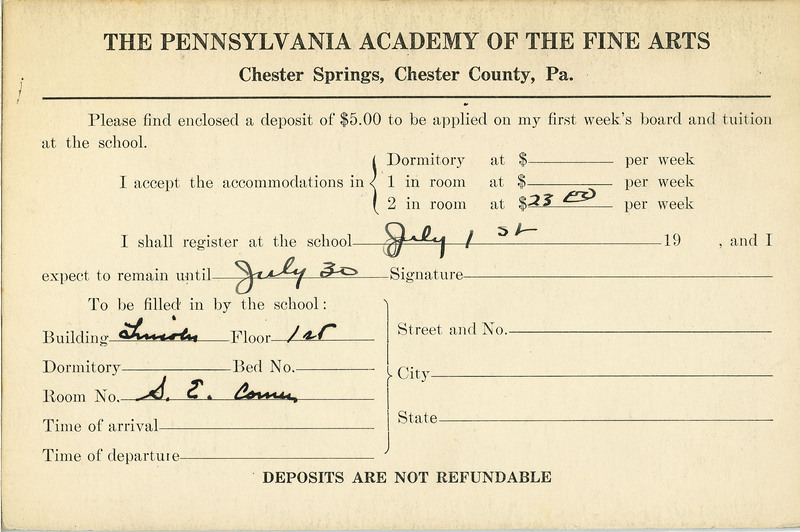 THE PENNSYLVANIA ACADEMY OF THE FINE ARTS
Chester Springs, Chester County, Pa.
Please find enclosed a deposit of $5.00 to be applied on my first week's board and tuition
at the school.
Dormitory at $ per week
I accept the accommodations in { 1 in room at $ per week
2 in room at $23 00 per week
I shall register at the school July 1 st 19 , and I
expect to remain until July 30 Signature
To be filled in by the school:
Building Lincoln Floor 1st
Street and No.
Dormitory Bed No.
City
Room No. S. E. Corner
State
Time of arrival
Time of departure
DEPOSITS ARE NOT REFUNDABLE